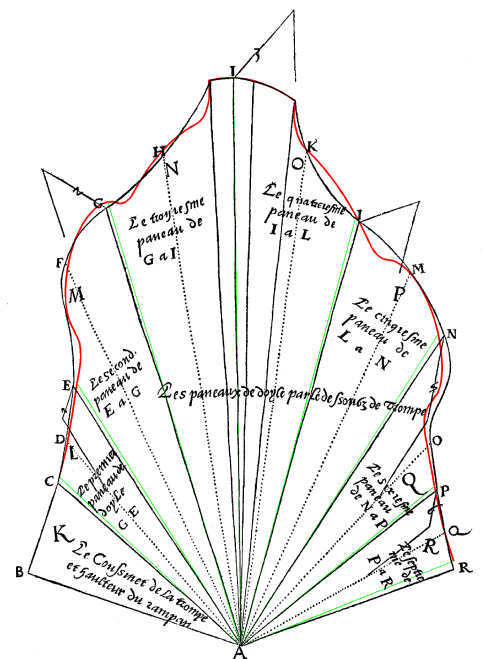 I
3
H
N
K
O
Le troyesme
paneau de
G a I
Le quatriesme
paneau de
I a L
2
G
I
F
M
M
P
Le cinquiesme
paneau de
L a N
N
Le second
paneau de
E a G
E
Les paneaux de doyle par le dessoubz de trompe
D
L
O
Le premier
paneau de
doyle
C E
C
Le sixiesme
paneau
de N a P
Q
P
K
Le Coussinet de la trompe
et haulteur du rampan
R
Q
Le septie
me de
P a R
B
R
A